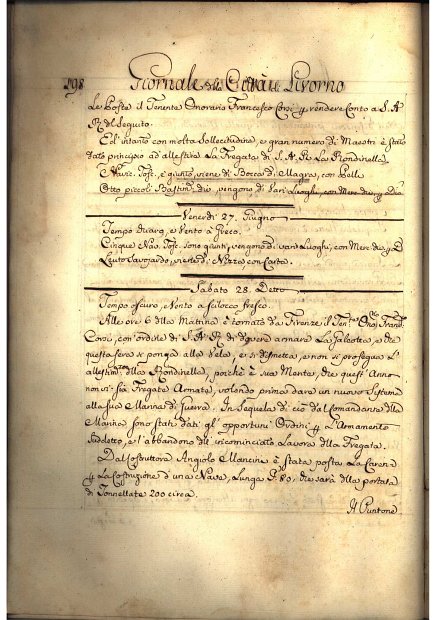 198 Giornale Città Livorno
le Poste il Tenente Onorario Francesco Corsi p rendere Conto a S. A
R. del Seguito.
Ed intanto con molta Sollecitudine, e gran numero di Maestri è stato
dato principio ad allestire La Fregata di S. A. R. La Rondinella.
Nave Tosc. è giunta, viene di Bocca di Magra, con
Otto piccoli Bastim. vengono di Vari Luoghi, con Merc. div.
Venerdì 27. Giugno
Tempo e Vento a Greco.
Cinque Nav. Tosc. sono giunti, vengono di vari Luoghi, con Merc. div.
Leuto Savojardo, viene di Nizza, con Carta.
Sabato 28. Detto
Tempo oscuro, e Vento a scilocco fresco.
Alle ore 6 della Mattina è tornato da Firenze il Ten. Onor. Fran.
Corsi, con ordine di S. A. R. di dovere armare La Galeotta, e che
questa sera si ponga alla Vela, e si dismetta, e non si proseguа L'
allestim. della Rondinella, poichè è sua Mente, che quest'Anno
non vi sia Fregate Armate, volendo prima dare un nuovo Sistema
alla sua Marina di Guerra. In Sequela di ciò dal Comandante della
Marina sono stati dati gl'opportuni Ordini p L'Armamento
Sudetto, e l'abbandono dell' incominciato Lavoro della Fregata.
Dal Costruttore Angiolo Mancini è stata posta La Carena
p La Costruzione d'una Nave, Lunga P. 80, che sarà della portata
di Tonnellate 200 circa.
Il Puntone